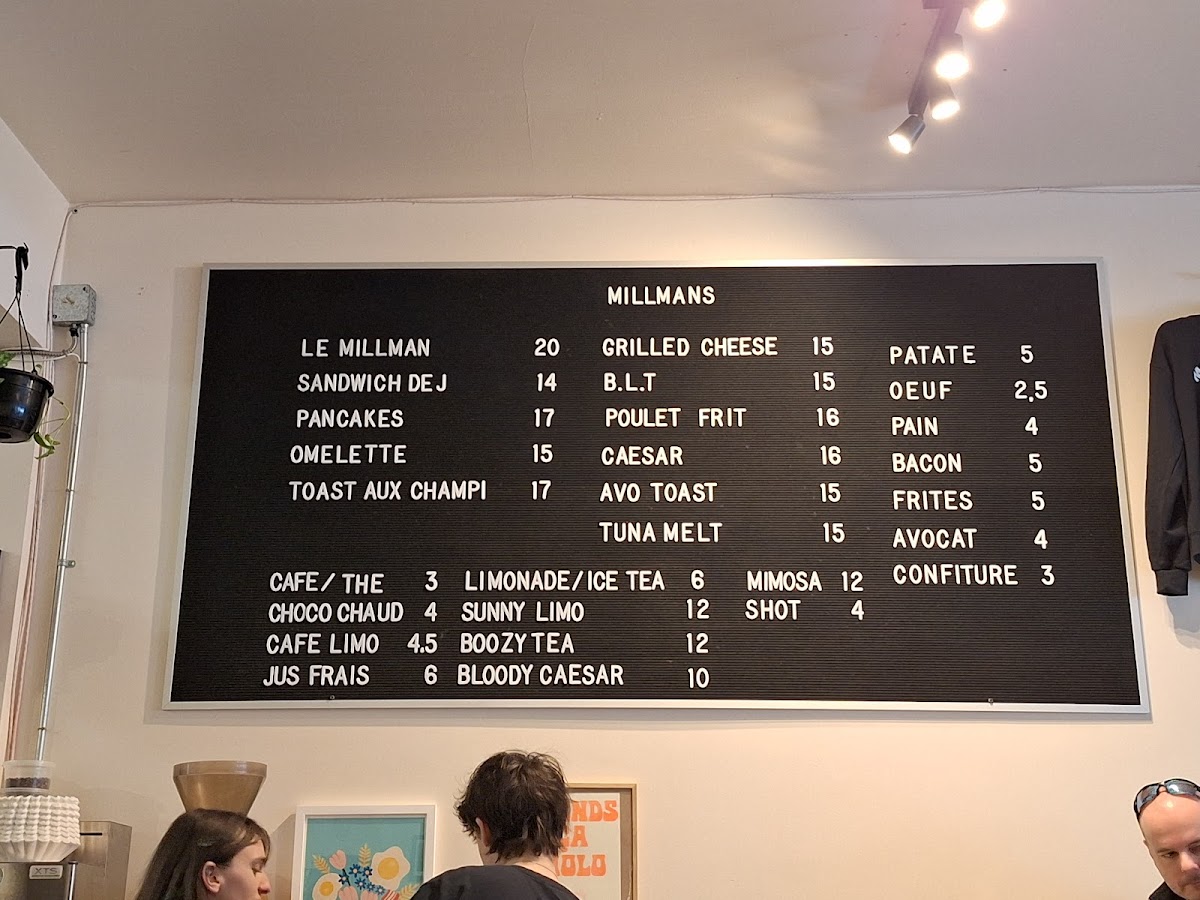 MILLMANS
LE MILLMAN 20
SANDWICH DEJ 14
PANCAKES 17
OMELETTE 15
TOAST AUX CHAMPI 17
GRILLED CHEESE 15
B.L.T 15
POULET FRIT 16
CAESAR 16
AVO TOAST 15
TUNA MELT 15
PATATE 5
OEUF 2,5
PAIN 4
BACON 5
FRITES 5
AVOCAT 4
CONFITURE 3
CAFE/ THE 3
CHOCO CHAUD 4
CAFE LIMO 4.5
JUS FRAIS 6
LIMONADE/ICE TEA 6
SUNNY LIMO 12
BOOZY TEA 12
BLOODY CAESAR 10
MIMOSA 12
SHOT 4
XTS